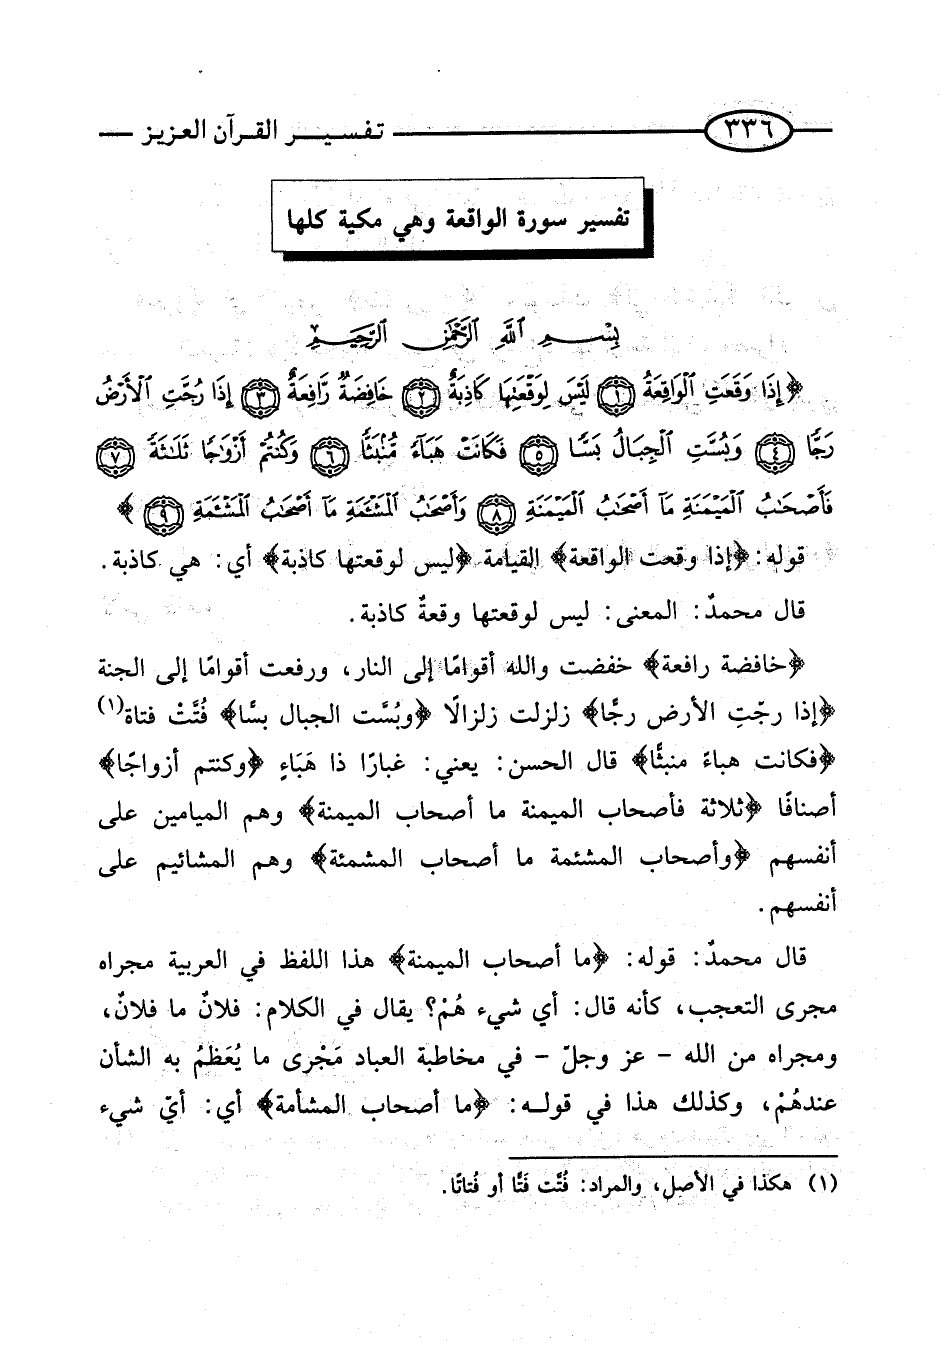 ٣٣٦ تفسير القرآن العزيز
تفسير سورة الواقعة وهي مكية كلها
بِسْمِ اللَّهِ الرَّحْمَٰنِ الرَّحِيمِ
﴿إِذَا وَقَعَتِ الْوَاقِعَةُ ١ لَيْسَ لِوَقْعَتِهَا كَاذِبَةٌ ٢ خَافِضَةٌ رَّافِعَةٌ ٣ إِذَا رُجَّتِ الْأَرْضُ
رَجًّا ٤ وَبُسَّتِ الْجِبَالُ بَسًّا ٥ فَكَانَتْ هَبَاءً مُّنبَثًّا ٦ وَكُنتُمْ أَزْوَاجًا ثَلَاثَةً ٧
فَأَصْحَابُ الْمَيْمَنَةِ مَا أَصْحَابُ الْمَيْمَنَةِ ٨ وَأَصْحَابُ الْمَشْئَمَةِ مَا أَصْحَابُ الْمَشْئَمَةِ ٩﴾
قوله: ﴿إذا وقعت الواقعة﴾ القيامة ﴿ليس لوقعتها كاذبة﴾ أي: هي كاذبة.
قال محمدٌ: المعنى: ليس لوقعتها وقعةٌ كاذبة.
﴿خافضة رافعة﴾ خفضت والله أقوامًا إلى النار، ورفعت أقوامًا إلى الجنة
﴿إذا رجّتِ الأرض رجًّا﴾ زلزلت زلزالًا ﴿وبُسَّت الجبال بسًّا﴾ فُتَّتْ فتاة(١)
﴿فكانت هباءً منبثًّا﴾ قال الحسن: يعني: غبارًا ذا هَبَاءٍ ﴿وكنتم أزواجًا﴾
أصنافًا ﴿ثلاثة فأصحاب الميمنة ما أصحاب الميمنة﴾ وهم الميامين على
أنفسهم ﴿وأصحاب المشئمة ما أصحاب المشمئة﴾ وهم المشائيم على
أنفسهم.
قال محمدٌ: قوله: ﴿ما أصحاب الميمنة﴾ هذا اللفظ في العربية مجراه
مجرى التعجب، كأنه قال: أي شيء هُمْ؟ يقال في الكلام: فلانٌ ما فلانٌ،
ومجراه من الله - عز وجلّ - في مخاطبة العباد مَجْرى ما يُعَظمُ به الشأن
عندهُمْ، وكذلك هذا في قوله: ﴿ما أصحاب المشأمة﴾ أي: أيّ شيء
(١) هكذا في الأصل، والمراد: فُتَّت فَتًّا أو فُتاتًا.